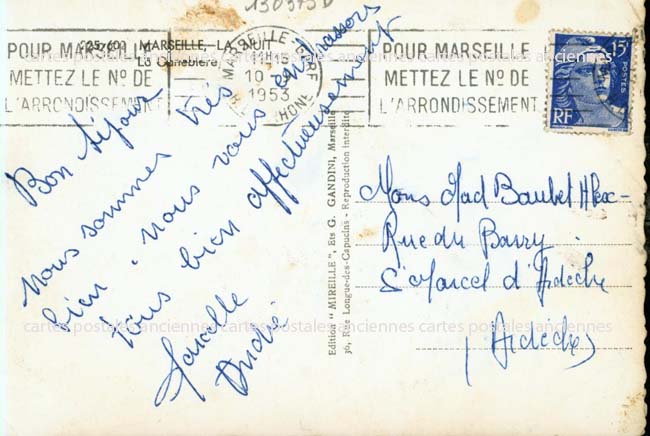 130375D
(25-60) MARSEILLE, LA NUIT
La Canebière
POUR MARSEILLE
METTEZ LE Nº DE
L'ARRONDISSEMENT
MARSEILLE-GARE
11H15
10
1953
RHÔNE
POUR MARSEILLE
METTEZ LE Nº DE
L'ARRONDISSEMENT
15F
POSTES
RF
Bon séjour
Nous sommes très
bien. Nous vous embrassons
tous bien affectueusement
Marcelle
André
Edition "MIREILLE", Ets G. GANDINI, Marseille
36, Rue Longue-des-Capucins - Reproduction interdite
Mons Mad Baubet Alex-
Rue du Barry
St Marcel d'Ardèche
(Ardèche)
cartes postales anciennes cartes postales anciennes cartes postales anciennes